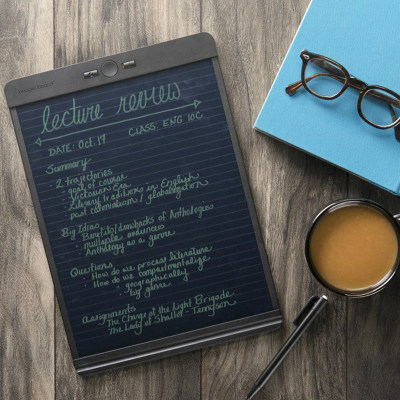 lecture review
DATE: Oct. 19 CLASS: ENG 10C
Summary
- 2 trajectories
- goals of course
- Victorian Era
- Literary traditions in English
post colonialism / globalization
Big Ideas
- Benefits/drawbacks of Anthologies
- multiple audiences
- Anthology as a genre
Questions
- How do we process literature
- How do we compartmentalize
- geographically
- by genre
Assignments
The Charge of the Light Brigade
The Lady of Shallot - Tennyson